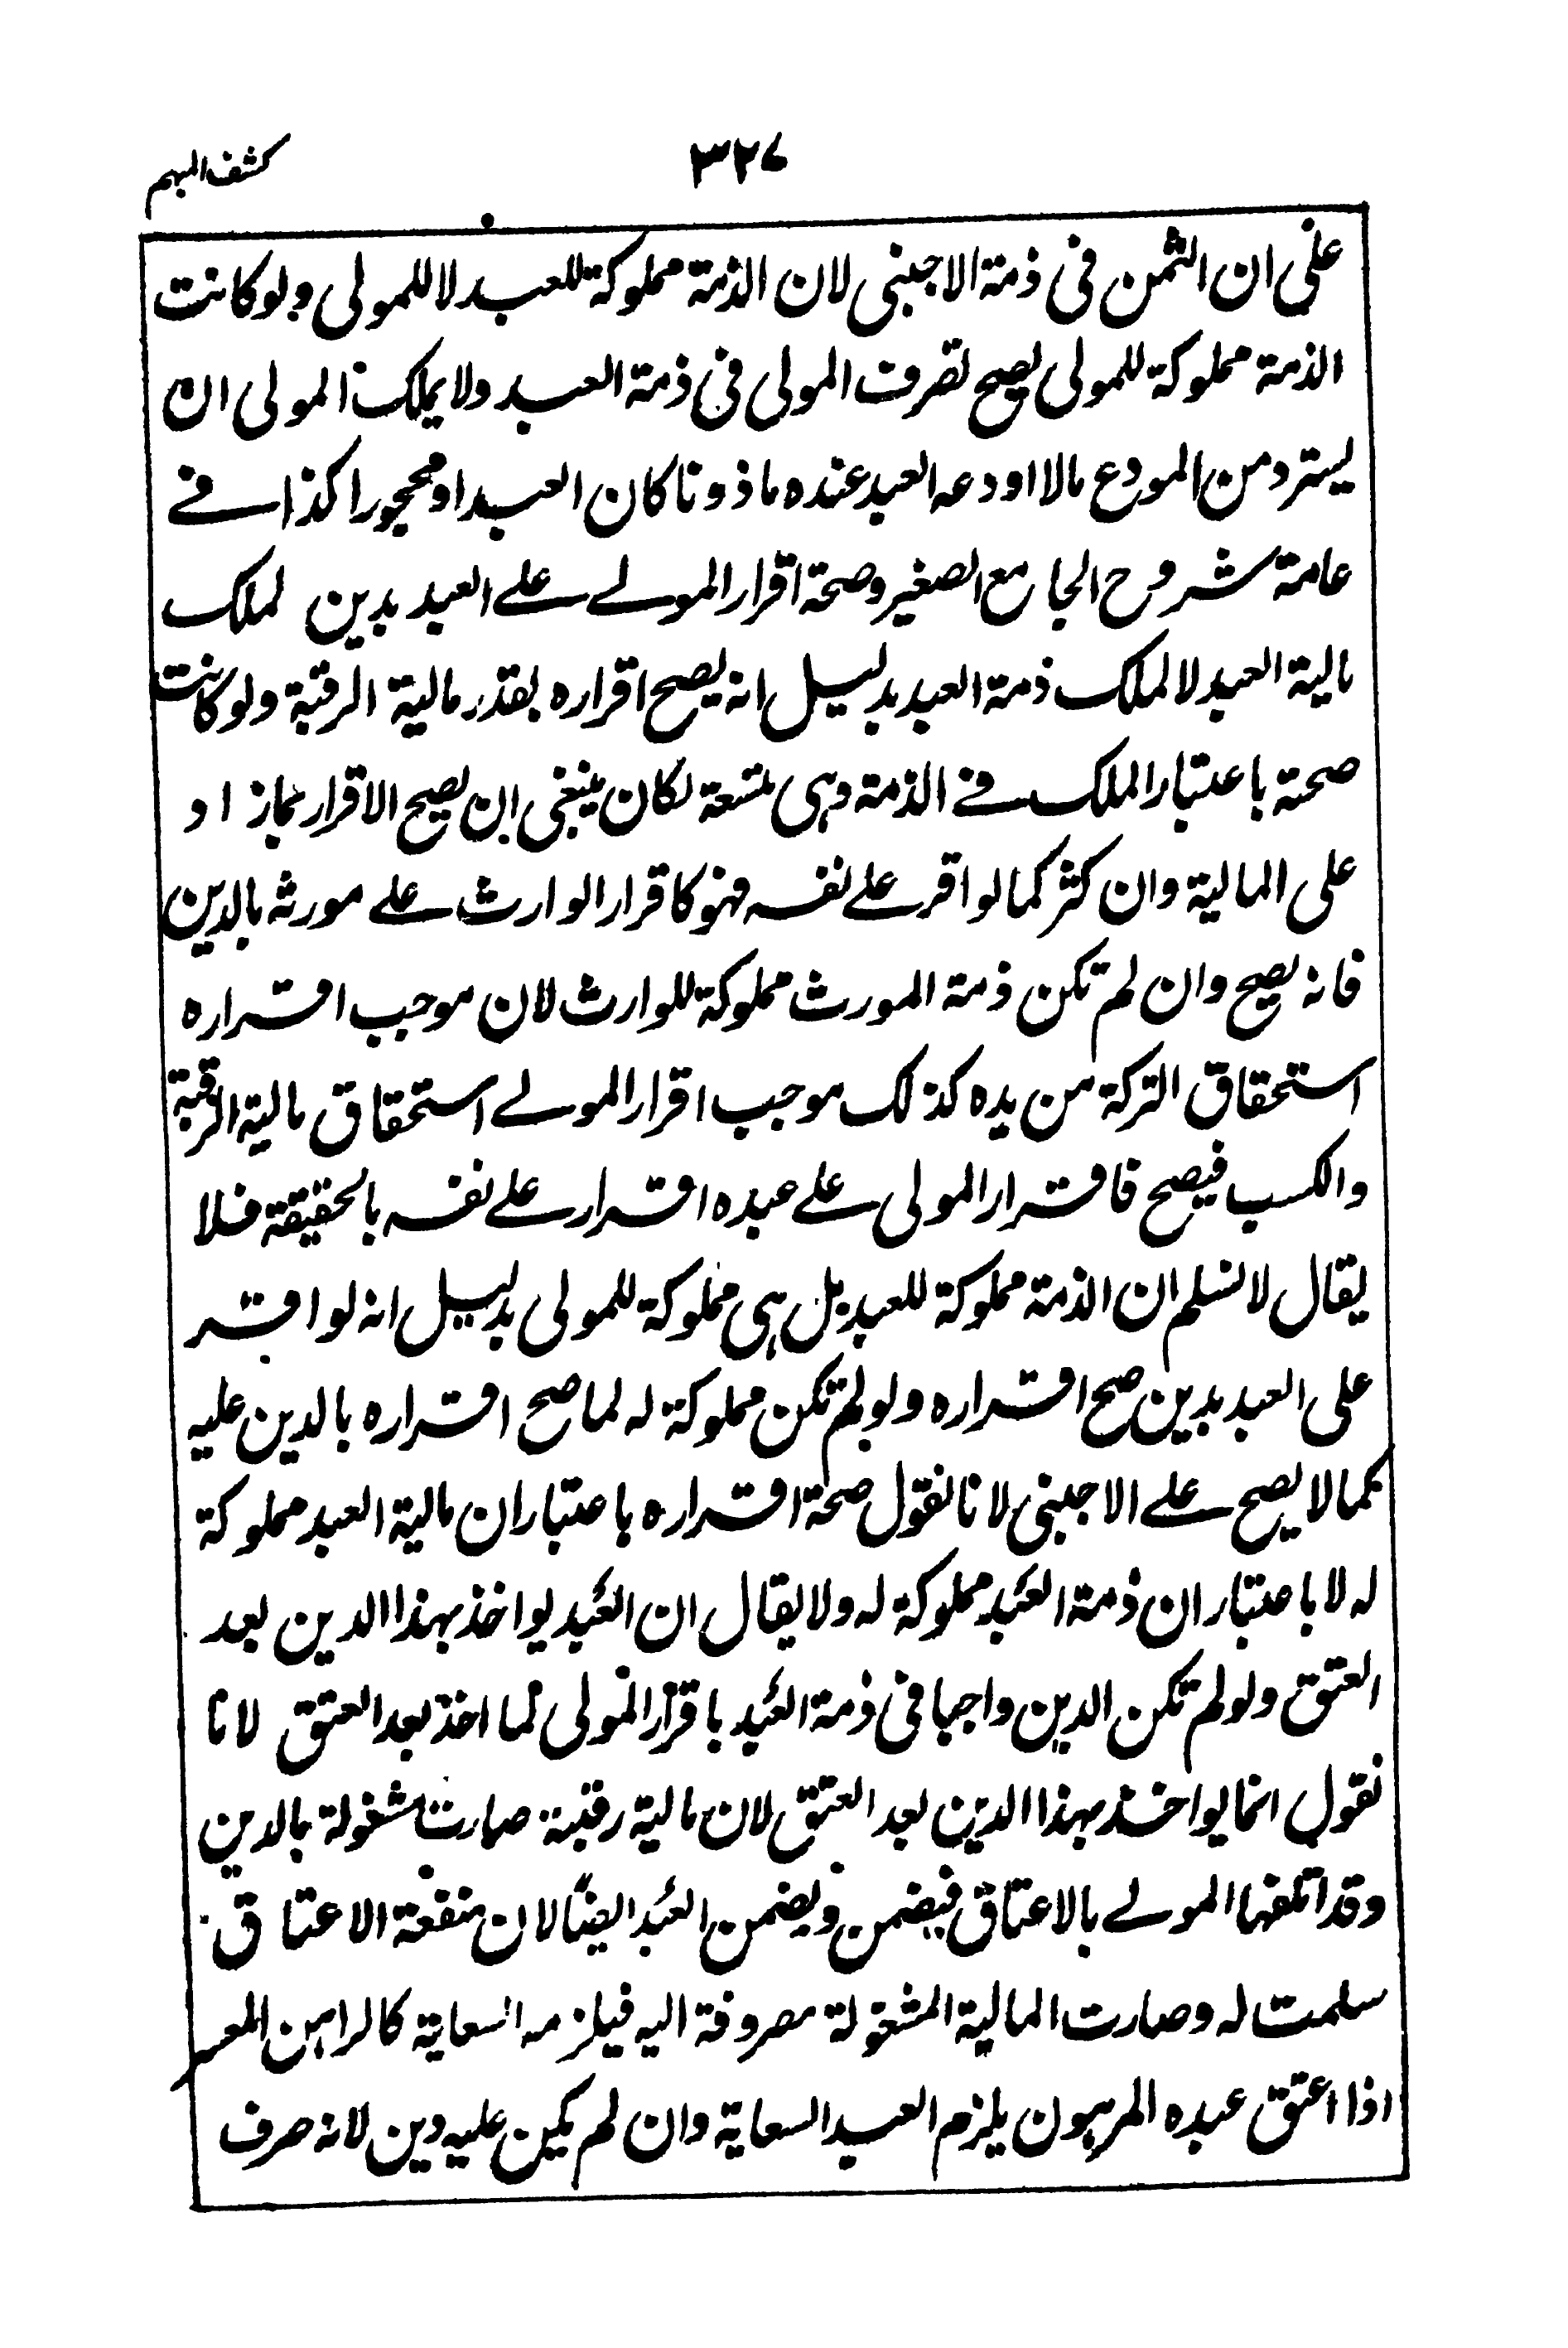 كشف المبهم
٣٢٧
على ان الثمن فى ذمة الاجنبى لان الذمة مملوكة للعبد لا للمولى ولو كانت
الذمة مملوكة للمولى يصح تصرف المولى فى ذمة العبد ولا يملك المولى ان
يسترد من المودع مالا اودعه العبد عنده ماذونا كان العبد او محجورا كذا فے
عامة شروح الجامع الصغير وصحة اقرار المولے علے العبد بدين لملك
مالية العبد لا لملك ذمة العبد بدليل انه يصح اقراره بقدر مالية الرقبة ولو كانت
صحته باعتبار الملك فے الذمة وهى متسعة لكان ينبغى ان يصح الاقرار بما زاد
على المالية وان كثر كما لو اقر علے نفسه فهو كاقرار الوارث علے مورثه بالدين
فانه يصح وان لم تكن ذمة المورث مملوكة للوارث لان موجب اقراره
استحقاق التركة من يده كذلك موجب اقرار المولے استحقاق مالية الرقبة
والكسب فيصح فاقرار المولى علے عبده اقرار علے نفسه بالحقيقة فلا
يقال لا نسلم ان الذمة مملوكة للعبد بل هى مملوكة للمولى بدليل انه لو اقر
على العبد بدين صح اقراره ولو لم تكن مملوكة له لما صح اقراره بالدين عليه
كما لا يصح علے الاجنبى لانا نقول صحة اقراره باعتبار ان مالية العبد مملوكة
له لا باعتبار ان ذمة العبد مملوكة له ولا يقال ان العبد يواخذ بهذا الدين بعد
العتق ولو لم تكن الدين واجبا فى ذمة العبد باقرار المولى لما اخذ بعد العتق لانا
نقول انما يواخذ بهذا الدين بعد العتق لان مالية رقبته صارت مشغولة بالدين
وقد اتلفها المولے بالاعتاق فيضمن ويضمن العبد ايضًا لان منفعة الاعتاق
سلمت له وصارت المالية المشغولة مصروفة اليه فيلزمه السعاية كالراهن المعسر
اذا اعتق عبده المرهون يلزم العبد السعاية وان لم يكن عليه دين لانه صرف